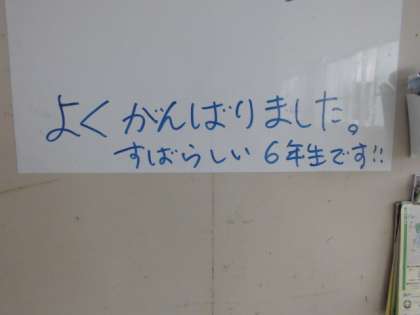 よくがんばりました。
すばらしい6年生です!!